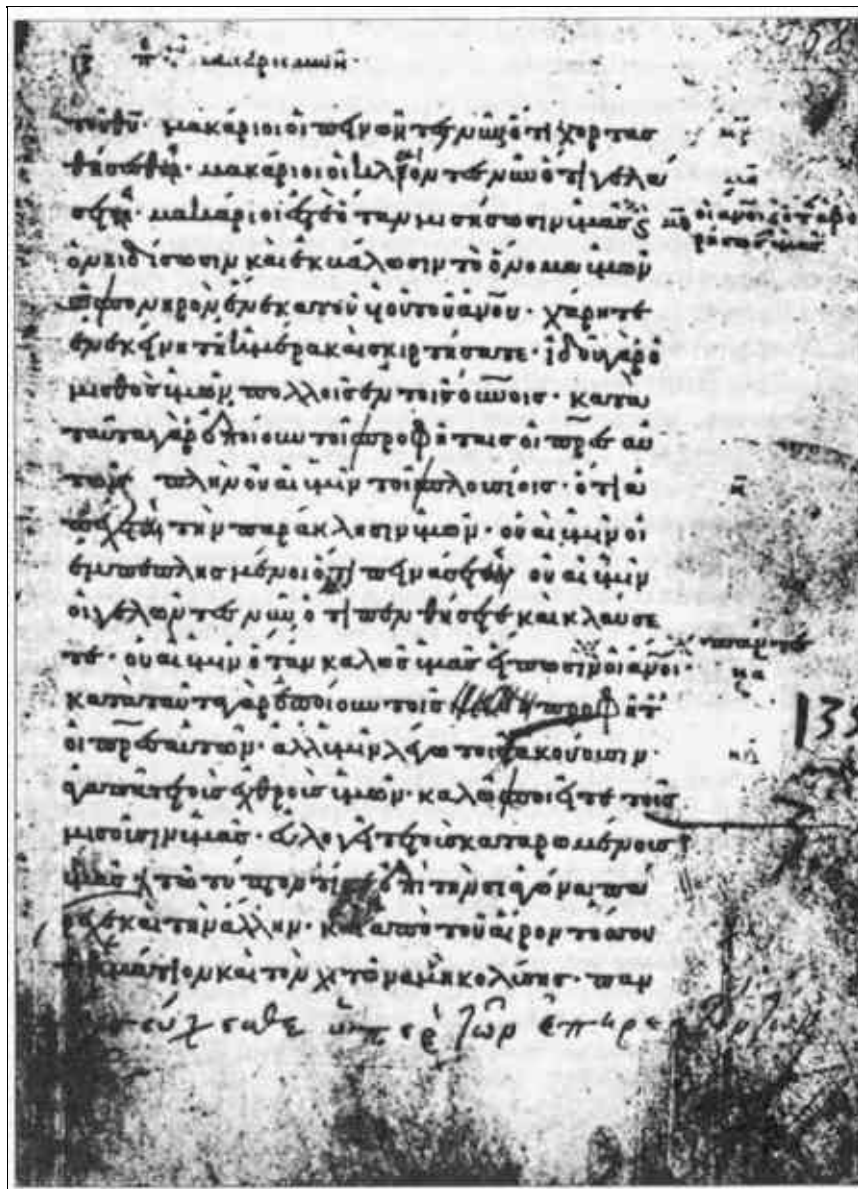 τοῦ θῦ. μακάριοι οἱ πεινῶντες νῦν ὅτι χορτασ
θήσεσθε. μακάριοι οἱ κλαίοντες νῦν ὅτι γελά
σετε. μακάριοί ἐστε ὅταν μισήσωσιν ὑμᾶς οἱ ἄνοι καὶ ὅταν ἀφο
ρίσωσιν ὑμᾶς
ὀνειδίσωσιν καὶ ἐκβάλωσιν τὸ ὄνομα ὑμῶν
ὡς πονηρὸν ἕνεκα τοῦ υἱοῦ τοῦ ἀνου. χάρητε
ἐν ἐκείνῃ τῇ ἡμέρᾳ καὶ σκιρτήσατε. ἰδοὺ γὰρ ὁ
μισθὸς ὑμῶν πολλοῖς ἐν τοῖς οὐνοις. κατὰ
ταῦτα γὰρ ἐποίουν τοῖς προφήταις οἱ πρες αὐ
τῶν πλὴν οὐαὶ ὑμῖν τοῖς πλουσίοις. ὅτι ἀ
πέχετε τὴν παράκλησιν ὑμῶν. οὐαὶ ὑμῖν οἱ
ἐμπεπλησμένοι ὅτι πεινάσετε οὐαὶ ὑμῖν
οἱ γελῶντες νῦν ὅτι πενθήσετε καὶ κλαύσε
τε. οὐαὶ ὑμῖν ὅταν καλῶς ὑμᾶς εἴπωσιν οἱ ἄνοι.
κατὰ ταῦτα γὰρ ἐποίουν τοῖς προφήτ
133
οἱ πρες αὐτῶν. ἀλλ ὑμῖν λέγω τοῖς ἀκούουσιν.
ἀγαπᾶτε τοὺς ἐχθροὺς ὑμῶν. καλῶς ποιεῖτε τοῖς
μισοῦσιν ὑμᾶς. εὐλογεῖτε τοὺς καταρωμένους
ὑμᾶς τῷ τύπτοντί σε ἐπὶ τὴν σιαγόνα πα
ρεχε καὶ τὴν ἄλλην. καὶ ἀπὸ τοῦ αἴροντός σου
τὸ ἱμάτιον καὶ τὸν χιτῶνα μὴ κωλύσῃς. παν
εύχεσθε ὑπὲρ τῶν ἐπηρε